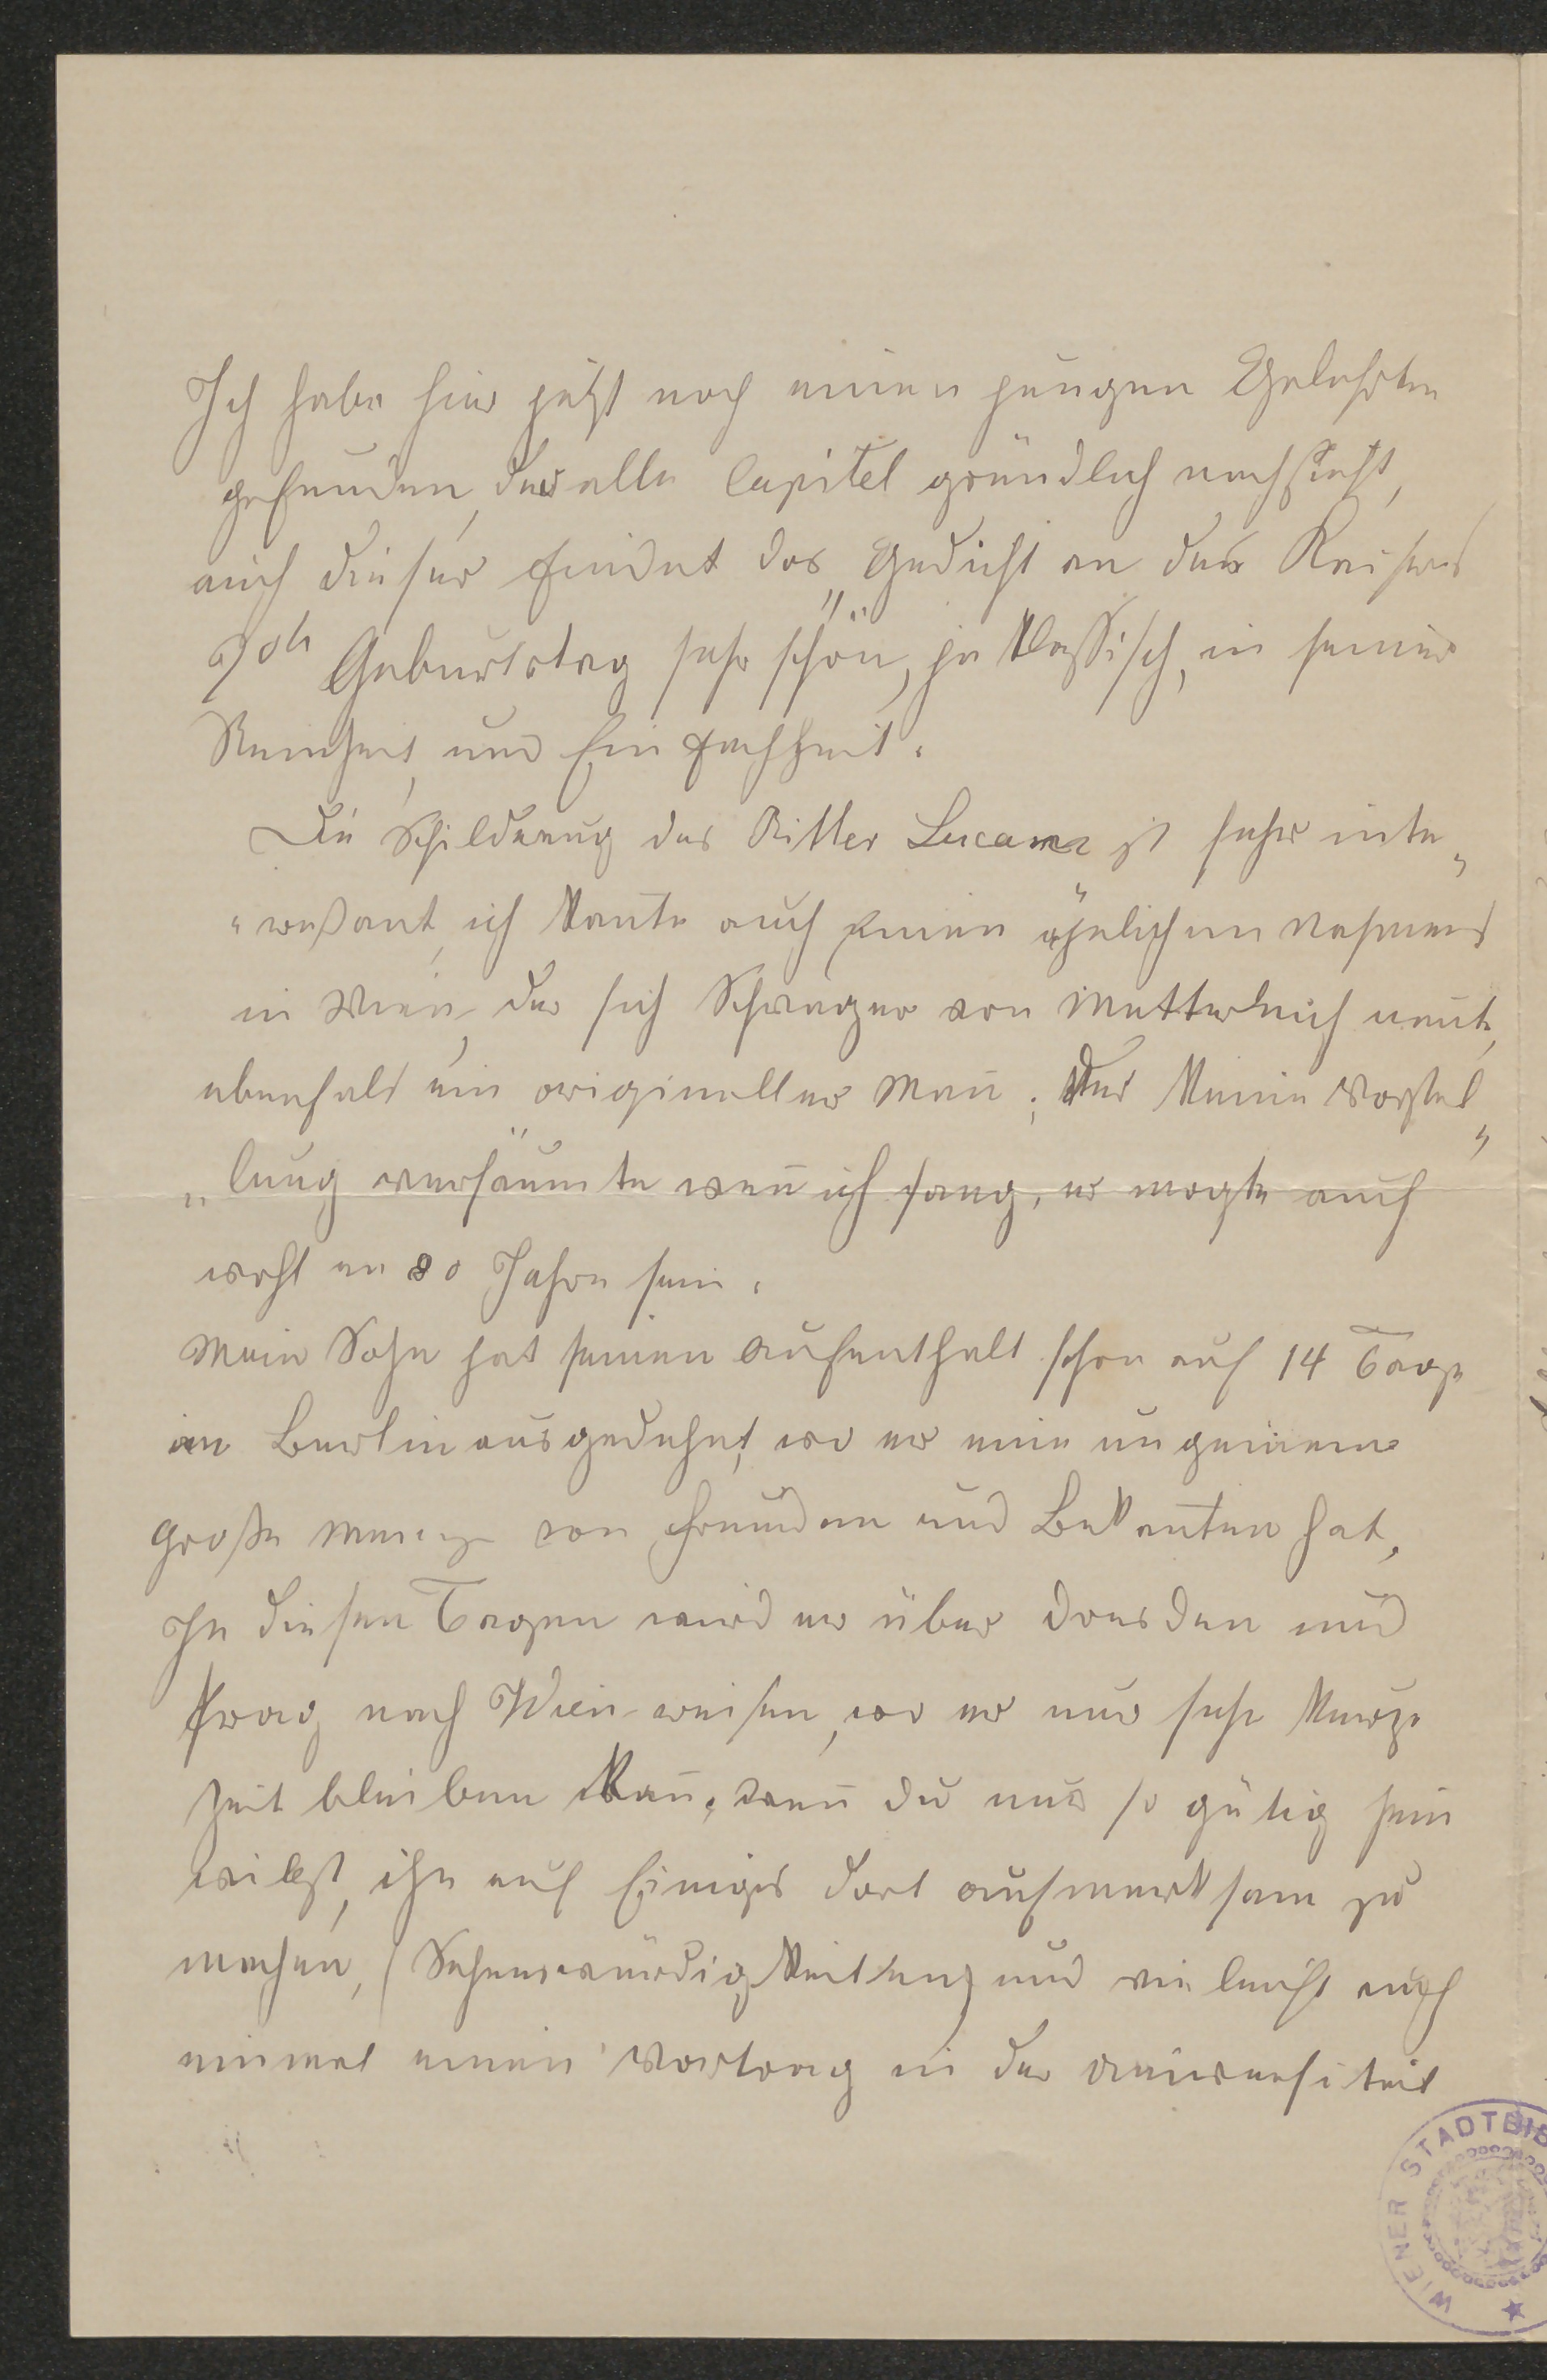 Ich habe hier jetzt noch einen jungen Gelehrten
gefunden, der alle Capitel gründlich nachsieht,
auch dieser findet das „Gedicht an des Kaisers
90th Geburtstag" sehr schön, ja klassisch, in seiner
Reinheit, und Einfachheit.
Die Schilderung des Ritter Lucam ist sehr inte„
„reßant, ich kan̄te auch einen ähnlichen Nahmens
in Wien, der sich Schwager von Metternich nan̄te,
ebenfals ein origineller Man̄; der keine Vorstel„
„lung versäumte wen̄ ich sang, er mogte auch
wohl an 80 Jahre sein.
Mein Sohn hat seinen Aufenthalt schon auf 14 Tage
in Berlin ausgedehnt, wo er eine ungemein
große Menge von Freunden und Bekan̄ten hat,
In diesen Tagen wird er über Dresden und
Prag nach Wien reisen, wo er nur sehr kurze
Zeit bleiben kan̄, wen̄ du nur so gütig sein
willst, ihn auf Einiges dort aufmerksam zu
machen, (Sehenswürdigkeiten) und vieleicht auch
einmal einen Vortrag in der Universität
WIENER STADTBIB